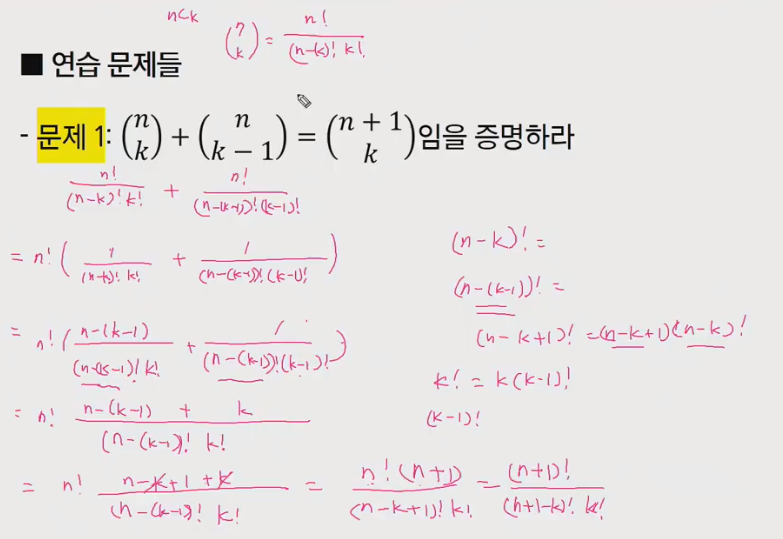 nCk
(n k) = n! / (n-k)! k!
■ 연습 문제들
- 문제 1: (n k) + (n k − 1) = (n + 1 k) 임을 증명하라
n! / (n-k)! k! + n! / (n-(k-1))! (k-1)!
= n! ( 1 / (n-k)! k! + 1 / (n-(k-1))! (k-1)! )
= n! ( n-(k-1) / (n-(k-1))! k! + 1 / (n-(k-1))! (k-1)! )
= n! n-(k-1) + k / (n-(k-1))! k!
= n! n-k+1+k / (n-(k-1))! k! = n! (n+1) / (n-k+1)! k! = (n+1)! / (n+1-k)! k!
(n-k)! =
(n-(k-1))! =
(n-k+1)! = (n-k+1)(n-k)!
k! = k(k-1)!
(k-1)!